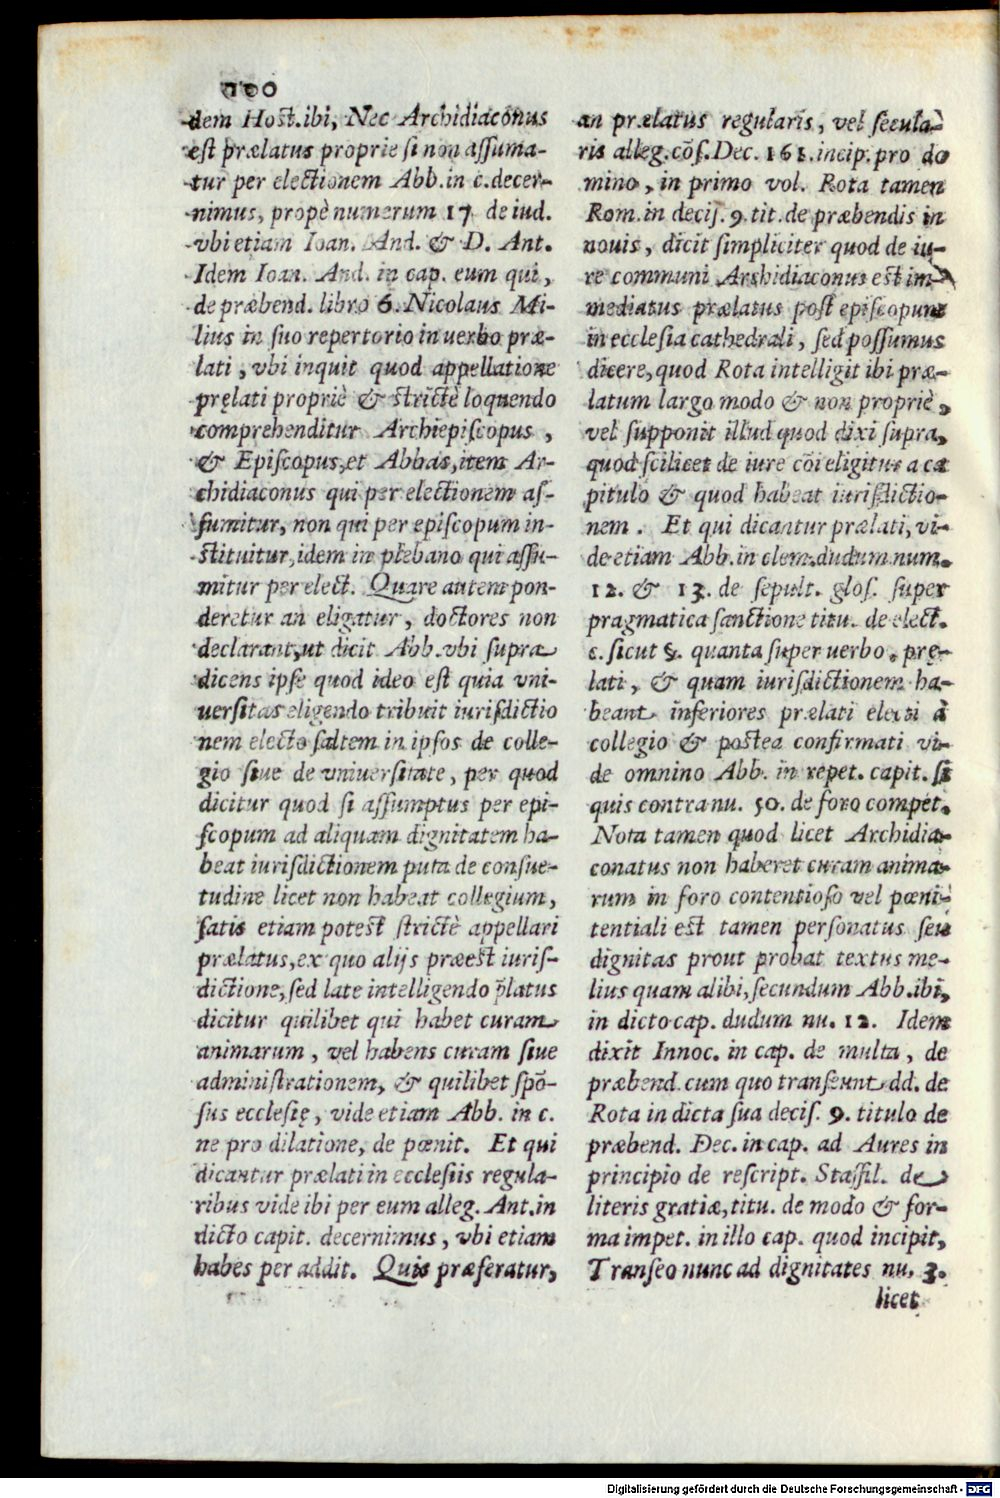 dem Host. ibi, Nec Archidiaconus
est prælatus proprie si non assuma-
tur per electionem Abb. in c. decer-
nimus, propè numerum 17 de iud.
vbi etiam Ioan. And. & D. Ant.
Idem Ioan. And. in cap. eum qui,
de præbend. libro 6. Nicolaus Mi-
lius in suo repertorio in uerbo præ-
lati, vbi inquit quod appellatione
pręlati propriè & strictè loquendo
comprehenditur Archiepiscopus,
& Episcopus, et Abbas, item Ar-
chidiaconus qui per electionem as-
sumitur, non qui per episcopum in-
stituitur, idem in plebano qui assu-
mitur per elect. Quare autem pon-
deretur an eligatur, doctores non
declarant, ut dicit Abb. vbi supra
dicens ipse quod ideo est quia vni-
uersitas eligendo tribuit iurisdictio
nem electo saltem in ipsos de colle-
gio siue de vniuersitate, per quod
dicitur quod si assumptus per epi-
scopum ad aliquam dignitatem ha-
beat iurisdictionem puta de consue-
tudine licet non habeat collegium,
satis etiam potest strictè appellari
prælatus, ex quo alijs præest iuris-
dictione, sed late intelligendo p̄latus
dicitur quilibet qui habet curam
animarum, vel habens curam siue
administrationem, & quilibet spō-
sus ecclesię, vide etiam Abb. in c.
ne pro dilatione, de pœnit. Et qui
dicantur prælati in ecclesiis regula-
ribus vide ibi per eum alleg. Ant. in
dicto capit. decernimus, vbi etiam
habes per addit. Quis præferatur,
an prælatus regularis, vel secula-
ris alleg. cōs. Dec. 161. incip. pro do
mino, in primo vol. Rota tamen
Rom. in decis. 9. tit. de præbendis in
nouis, dicit simpliciter quod de iu-
re communi Archidiaconus est im-
mediatus prælatus post episcopum
in ecclesia cathedrali, sed possumus
dicere, quod Rota intelligit ibi præ-
latum largo modo & non propriè,
vel supponit illud quod dixi supra,
quod scilicet de iure cōi eligitur a ca
pitulo & quod habeat iurisdictio-
nem. Et qui dicantur prælati, vi-
de etiam Abb. in clem. dudum num.
12. & 13. de sepult. glos. super
pragmatica sanctione titu. de elect.
c. sicut §. quanta super uerbo, prę-
lati, & quam iurisdictionem ha-
beant inferiores prælati electi à
collegio & postea confirmati vi-
de omnino Abb. in repet. capit. si
quis contra nu. 50. de foro compet.
Nota tamen quod licet Archidia-
conatus non haberet curam anima-
rum in foro contentioso vel pœni-
tentiali est tamen personatus seu
dignitas prout probat textus me-
lius quam alibi, secundum Abb. ibi,
in dicto cap. dudum nu. 12. Idem
dixit Innoc. in cap. de multa, de
præbend. cum quo transeunt dd. de
Rota in dicta sua decis. 9. titulo de
præbend. Dec. in cap. ad Aures in
principio de rescript. Staffil. de
literis gratiæ, titu. de modo & for-
ma impet. in illo cap. quod incipit,
Transeo nunc ad dignitates nu. 3.
licet
Digitalisierung gefördert durch die Deutsche Forschungsgemeinschaft - DFG